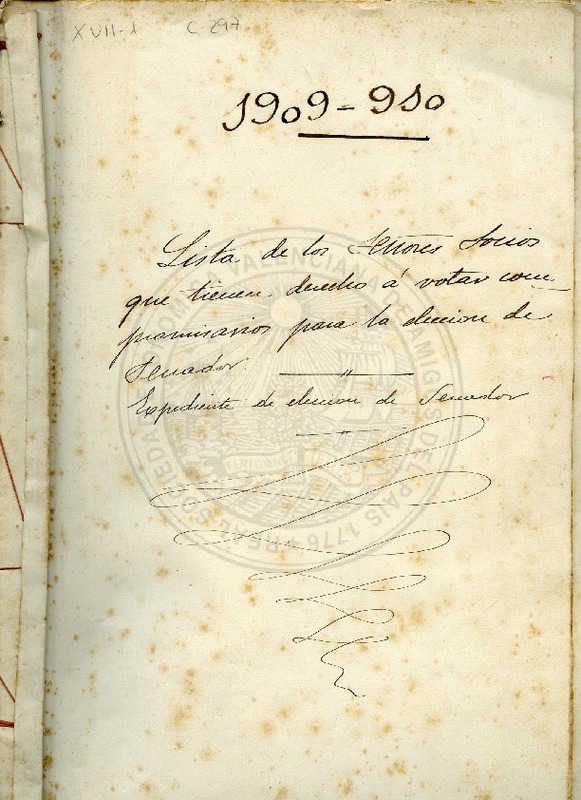 XVII-1 C-297
1909-910
Lista de los Señores Socios
que tienen derecho á votar com
promisarios para la eleccion de
Senador.
Expediente de eleccion de Senador
REAL SOCIEDAD ECONOMICA VALENCIANA DE AMIGOS DEL PAIS 1776